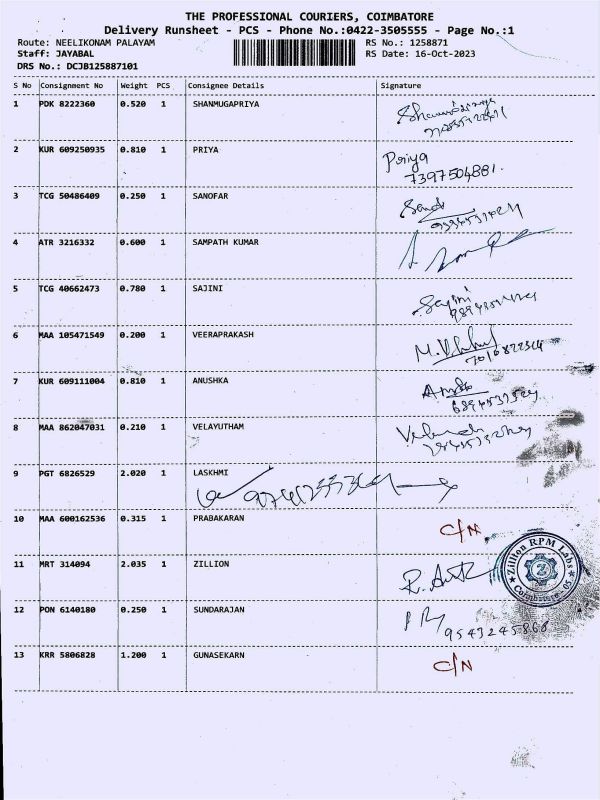 THE PROFESSIONAL COURIERS, COIMBATORE
Delivery Runsheet - PCS - Phone No.:0422-3505555 - Page No.:1
Route: NEELIKONAM PALAYAM RS No.: 1258871
Staff: JAYABAL RS Date: 16-Oct-2023
DRS No.: DCJB125887101
S No Consignment No Weight PCS Consignee Details Signature
1 PDK 8222360 0.520 1 SHANMUGAPRIYA
2 KUR 609250935 0.810 1 PRIYA Priya
7397504881.
3 TCG 50486409 0.250 1 SANOFAR
4 ATR 3216332 0.600 1 SAMPATH KUMAR
5 TCG 40662473 0.780 1 SAJINI Sajini
6 MAA 105471549 0.200 1 VEERAPRAKASH
7 KUR 609111004 0.810 1 ANUSHKA
8 MAA 862047031 0.210 1 VELAYUTHAM
9 PGT 6826529 2.020 1 LASKHMI
10 MAA 600162536 0.315 1 PRABAKARAN C/N
11 MRT 314094 2.035 1 ZILLION
Zillion RPM Labs
Coimbatore. 05
12 PON 6140180 0.250 1 SUNDARAJAN
9543245868
13 KRR 5806828 1.200 1 GUNASEKARN C/N